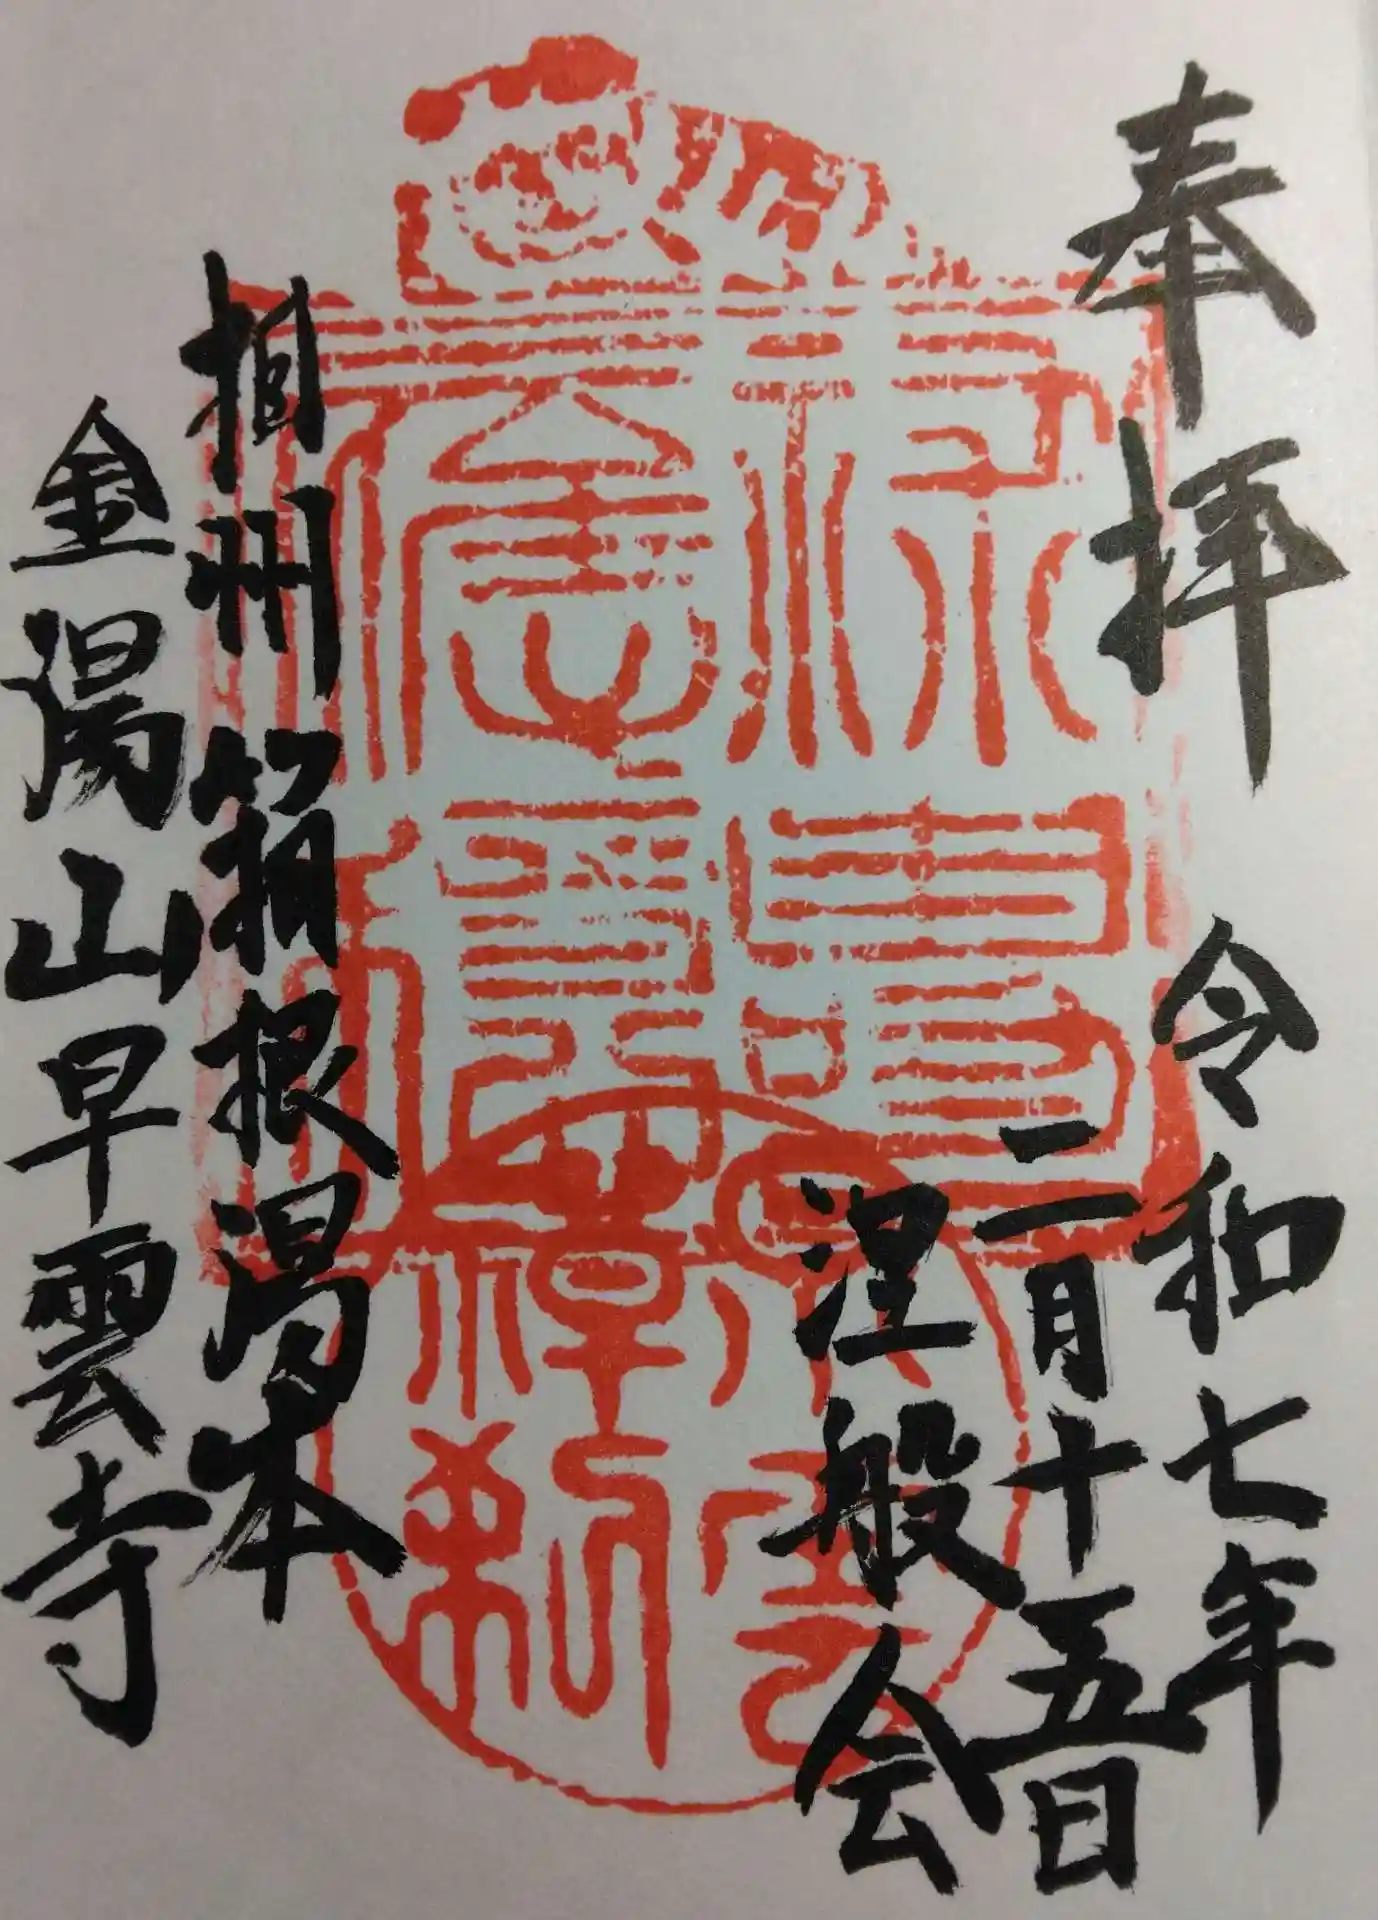 奉拝
令和七年
二月十五日
涅槃会
祿壽應穏
相州箱根湯本
金湯山早雲寺